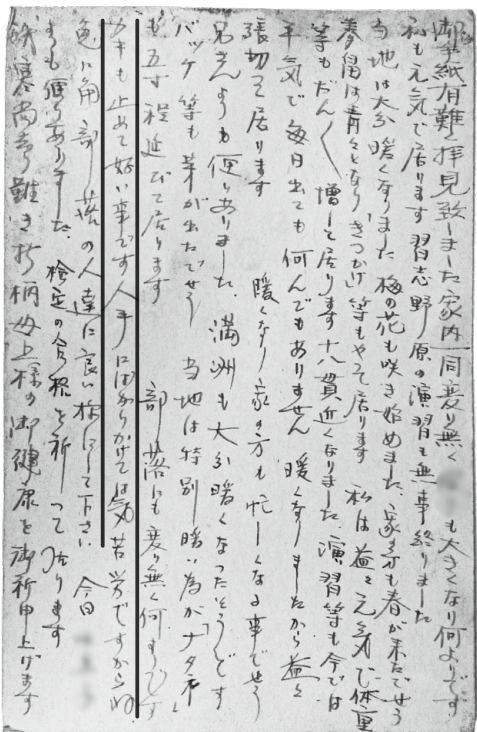 御手紙有難く拝見致しました家内一同変り無く も大きくなり何よりです
私も元気で居ります習志野原の演習も無事終りました
当地は大分暖くなりました梅の花も咲き始めました、家の方も春が来たでせう
麦畠は青々となり 等もやって居ります 私は益々元気で体重
等もだん〱増して居ります十八貫近くなりました、演習等も今では
平気で毎日出ても何んでもありません 暖くなりましたから益々
張切って居ります 暖くなり家の方も忙しくなる事でせう
兄さんよりも便りありました、満洲も大分暖くなったそうです
バッケ等も芽が出たでせう 当地は特別暖い為か「ナタネ」
も五寸程延びて居ります 部落にも変り無く何よりです
も止めて好い事です人手にばかりかけては気苦労ですからね
兎に角部落の人達に良い様にして下さい 今日
よりも便りありました 検定の合格を祈って居ります
余寒尚去り難き折柄母上様の御健康を御祈申上げます